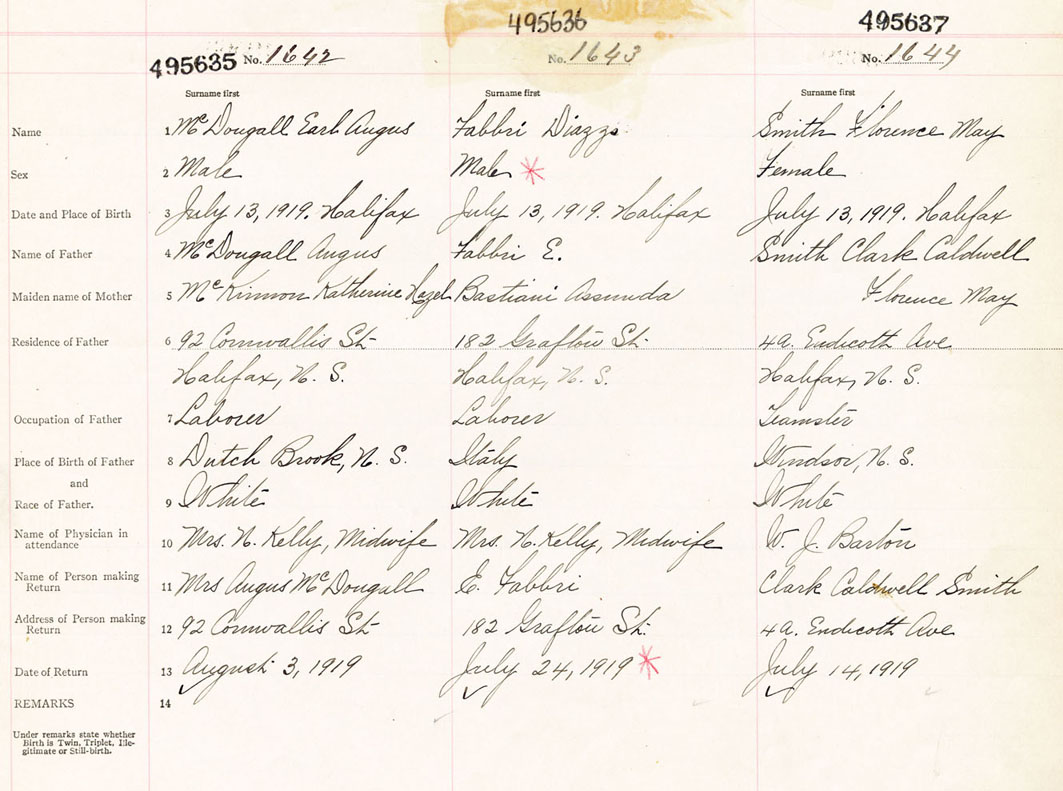 495636 495637
495635 No. 1642 No. 1643 No. 1644
Surname first Surname first Surname first
Name 1 McDougall Earl Angus Fabbri Diazzo Smith Florence May
Sex 2 Male Male Female
Date and Place of Birth 3 July 13, 1919. Halifax July 13, 1919. Halifax July 13, 1919. Halifax
Name of Father 4 McDougall Angus Fabbri E. Smith Clark Caldwell
Maiden name of Mother 5 McKinnon Katherine Hazel Bastiani Assunda Florence May
Residence of Father 6 92 Cornwallis St 182 Grafton St. 4a. Endicott Ave
Halifax, N. S. Halifax, N. S. Halifax, N. S.
Occupation of Father 7 Laborer Laborer Teamster
Place of Birth of Father 8 Dutch Brook, N. S. Italy Windsor, N. S.
and
Race of Father. 9 White White White
Name of Physician in
attendance 10 Mrs. N. Kelly, Midwife Mrs. N. Kelly, Midwife W. J. Barton
Name of Person making
Return 11 Mrs Angus McDougall E. Fabbri Clark Caldwell Smith
Address of Person making
Return 12 92 Cornwallis St 182 Grafton St. 4a. Endicott Ave
Date of Return 13 August 3, 1919 July 24, 1919 July 14, 1919
REMARKS 14
Under remarks state whether
Birth is Twin, Triplet, Ille-
gitimate or Still-birth.